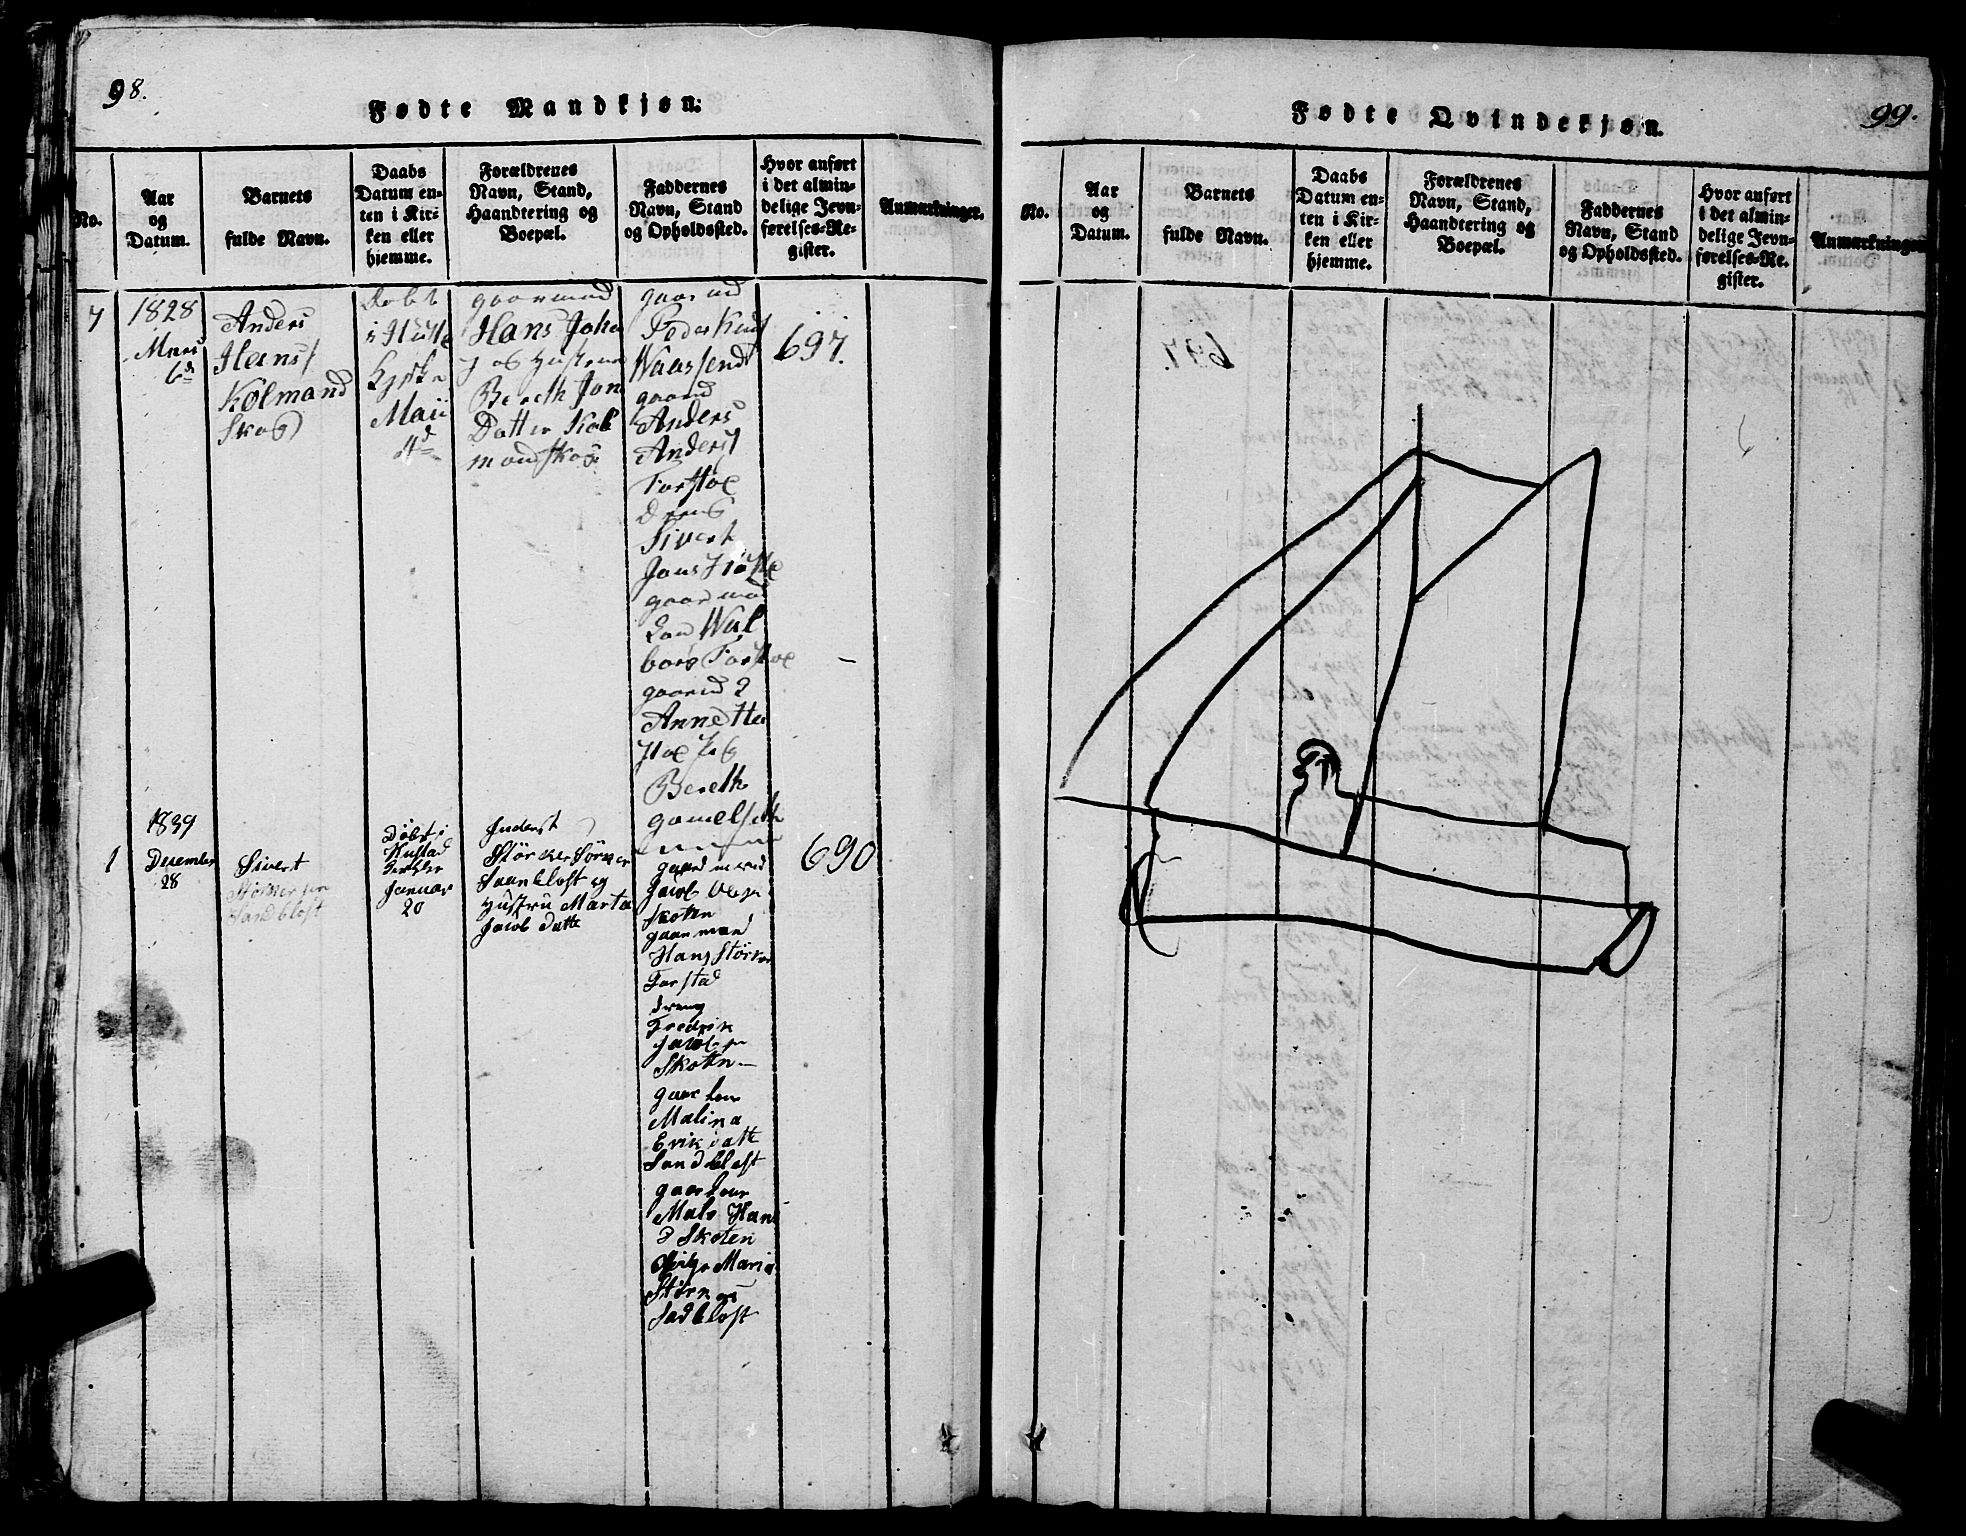 98.
Fødte Mandkjøn:
No.
Aar
og
Datum.
Barnets
fulde Navn.
Daabs
Datum en-
ten i Kir-
ken eller
hjemme.
Forældrenes
Navn, Stand,
Haandtering og
Boepæl.
Faddernes
Navn, Stand
og Opholdssted.
Hvor anført
i det almin-
delige Jevn-
førelses-Re-
gister.
Anmærkninger.
7
1828
6d
Anders
Hans
Kølmand
Skog
Døbt
i
Kyrke
Maii
4d
gaarmand
Hans Joha
og Hustrue
Bereth Jon
Datter Kol
mandskog
gaarmd
Peder Knud
gaarmd
Anders
Anders
Forstoe
dreng
Sivert
Jons
gaarmand
Wal
borg Forstoe
Bereth
gamelseth
697.
1
1839
Desember
28
Sivert
Størkersen
Sandblost
Døbt i
Kustad
Januar
20
Inderst
Størker Størker
Saanblost og
Hustru Marta
Jacob datte
gaardmand
Jacob
Skoten
gaarman
Hans Størker
Forstad
dreng
Fredrik
Jacob
Skotten
Malina
Erik datte
Sandblost
Hans
d Skoten
Maria
Størker
Sadblost
690
Fødte Qvindekjøn.
99.
No.
Aar
og
Datum.
Barnets
fulde Navn.
Daabs
Datum en-
ten i Kir-
ken eller
hjemme.
Forældrenes
Navn, Stand,
Haandtering og
Boepæl.
Faddernes
Navn, Stand
og Opholdssted.
Hvor anført
i det almin-
delige Jevn-
førelses-Re-
gister.
Anmærkninger